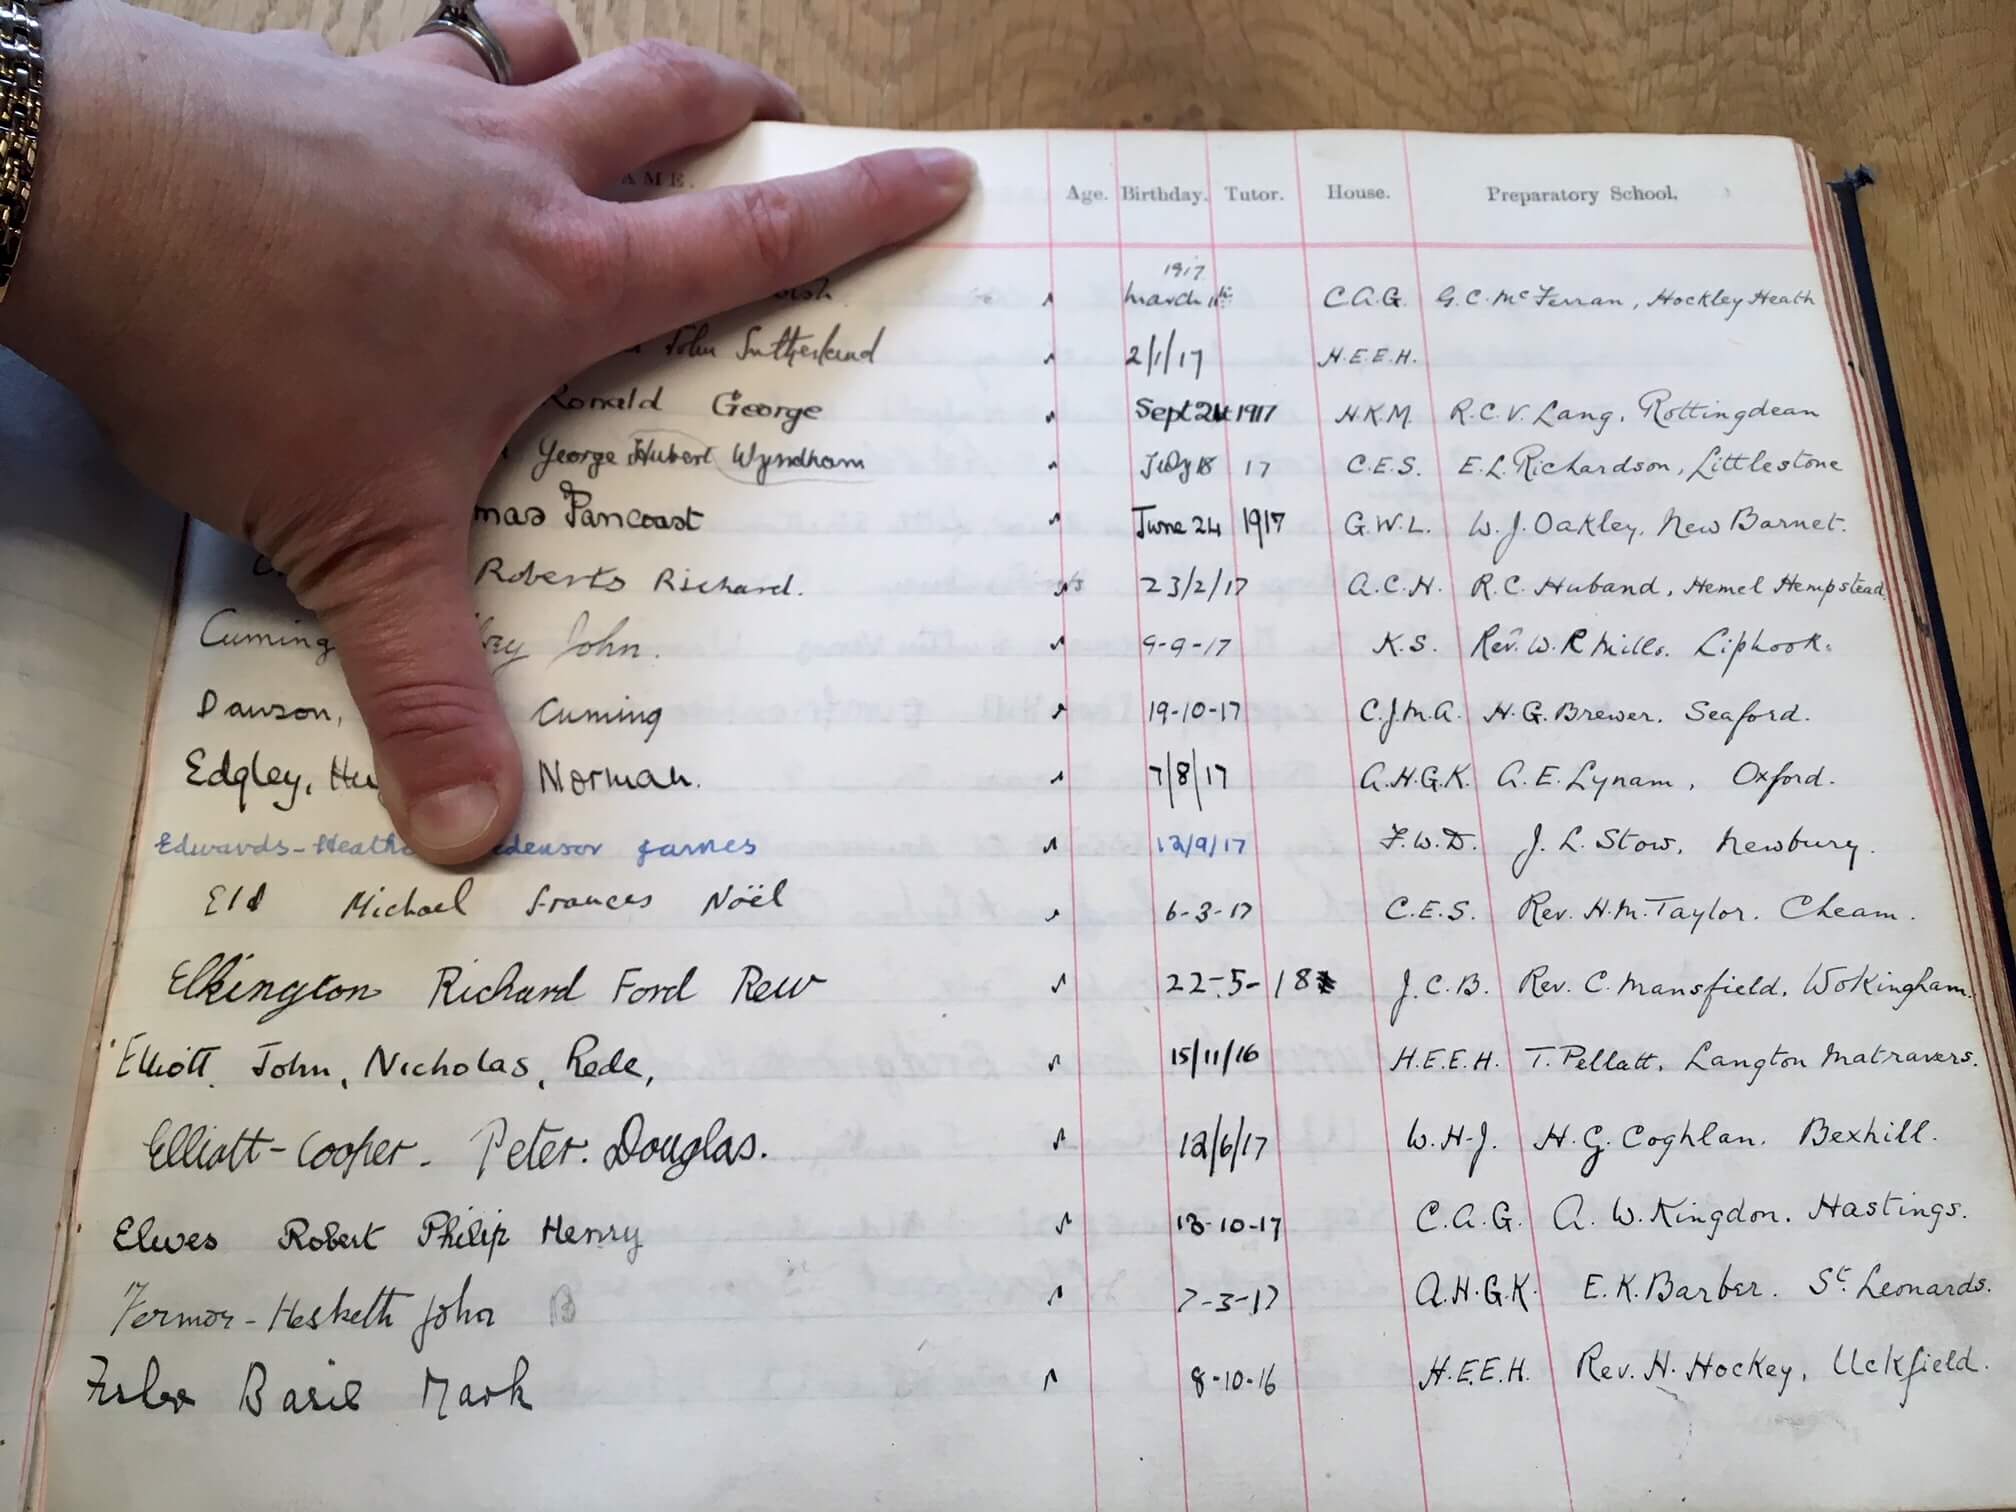 AME. Age. Birthday. Tutor. House. Preparatory School.
1917
March 11th C.A.G. G.C. McFerran, Hockley Heath
John Sutherland 2/1/17 H.E.E.H.
Ronald George Sept 24 1917 H.K.M. R.C.V. Lang, Rottingdean
George Hubert Wyndham July 18 17 C.E.S. E.L. Richardson, Littlestone
mas Pancoast June 24 1917 G.W.L. W.J. Oakley, New Barnet.
Roberts Richard. 23/2/17 A.C.H. R.C. Huband, Hemel Hempstead
Cuming John. 9-9-17 K.S. Rev. W.R Mills. Liphook.
Dawson, Cuming 19-10-17 C.J.M.A. H.G. Brewer. Seaford.
Edgley, Hu Norman. 7/8/17 A.H.G.K. A.E. Lynam, Oxford.
Edwards-Heathc edensor James 12/9/17 F.W.D. J.L. Stow, Newbury.
Eld Michael Frances Nöel 6-3-17 C.E.S. Rev. H.M. Taylor. Cheam.
Elkington Richard Ford Rew 22-5-18 J.C.B. Rev. C. Mansfield, Wokingham.
Elliott, John, Nicholas, Rede, 15/11/16 H.E.E.H. T. Pellatt, Langton Matravers.
Elliott-Cooper. Peter. Douglas. 12/6/17 W.H.J. H.G. Coghlan. Bexhill.
Elwes Robert Philip Henry 13-10-17 C.A.G. A.W. Kingdon. Hastings.
Fermor-Hesketh John B 7-3-17 A.H.G.K. E.K. Barber. St. Leonards.
Basil Mark 8-10-16 H.E.E.H. Rev. H. Hockey, Uckfield.